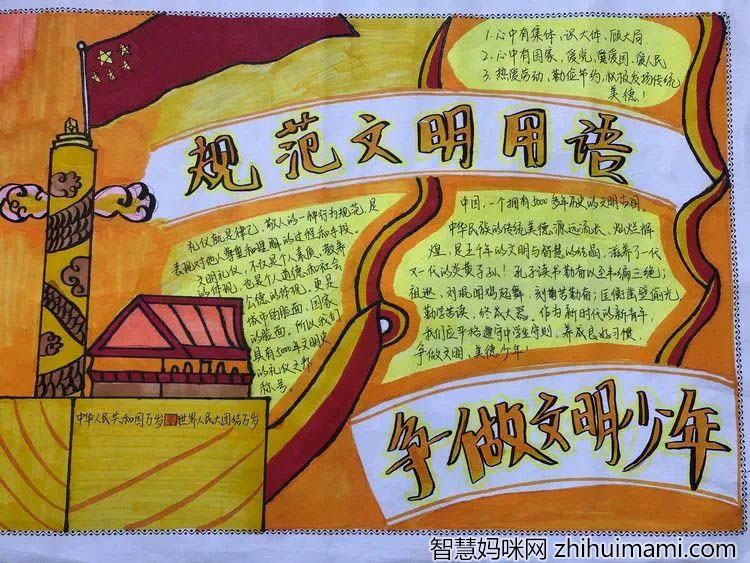 1.心中有集体、识大体、顾大局.
2.心中有国家、爱党、爱国、爱人民
3.热爱劳动、勤俭节约、积极发扬传统
美德!
规范文明用语
礼仪就是律己、敬人的一种行为规范,是
表现对他人尊重和理解的过程和手段。
文明礼仪,不仅是个人素质、教养
的体现,也是个人道德和社会
公德的体现。更是
城市的脸面,国家
的脸面。所以我们
具有5000年文明史
的礼仪之邦
称号。
中国,一个拥有5000多年历史的文明古国。
中华民族的传统美德源远流长、灿烂辉
煌,是五千年的文明与智慧的结晶,滋养了一代
又一代的炎黄子孙!孔子读书勤奋以至韦编三绝;
祖逖、刘琨闻鸡起舞、刻苦勤奋;匡衡凿壁偷光,
勤学苦读,终成大器。作为新时代的新青年,
我们应严格遵守中学生守则,养成良好习惯.
争做文明、美德少年!
中华人民共和国万岁 世界人民大团结万岁
争做文明少年
智慧妈咪网 zhihuimami.com